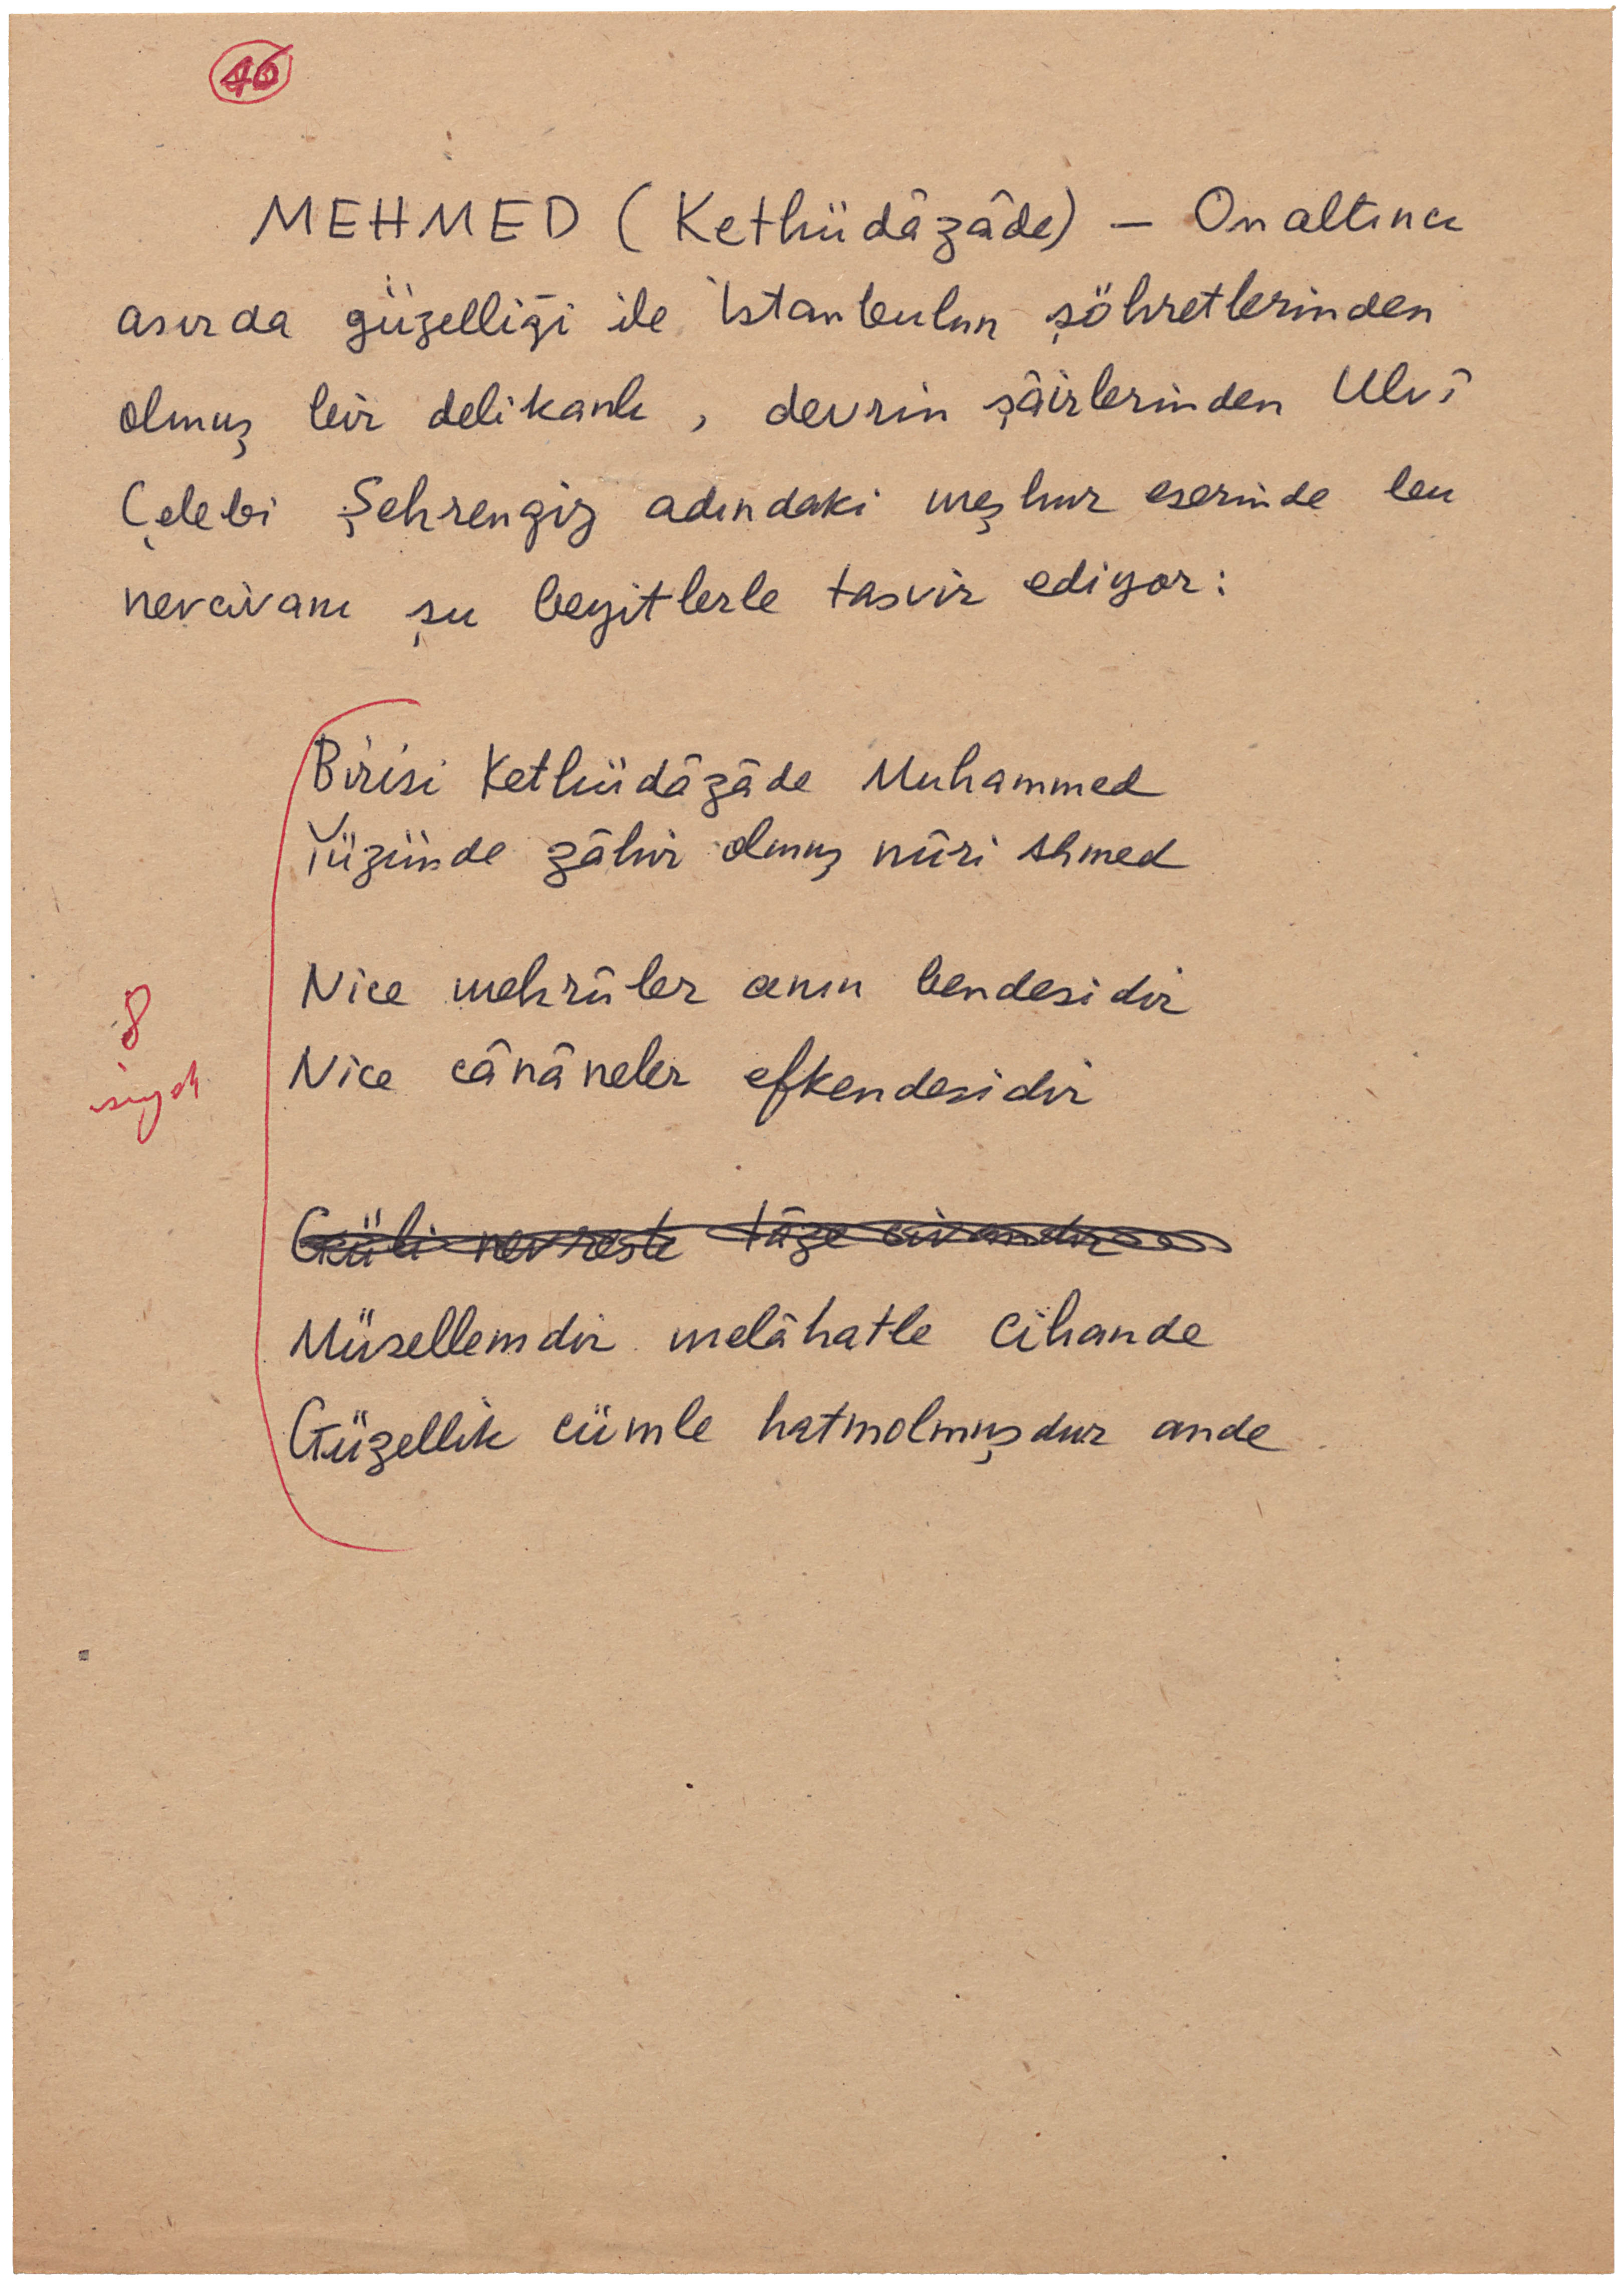 46
MEHMED (Kethüdâzâde) — Onaltıncı
asırda güzelliği ile İstanbulun şöhretlerinden
olmuş bir delikanlı, devrin şâirlerinden Ulvî
Çelebi Şehrengiz adındaki meşhur eserinde bu
nevcivanı şu beyitlerle tasvir ediyor:
Birisi Kethüdâzâde Muhammed
Yüzünde zâhir olmuş nûri Ahmed
Nice mehrûler anın bendesidir
Nice cânâneler efkendesidir
8
siyah
Güli nevreste tâze civandır
Müsellemdir melâhatle cihande
Güzellik cümle hatmolmuşdur ande